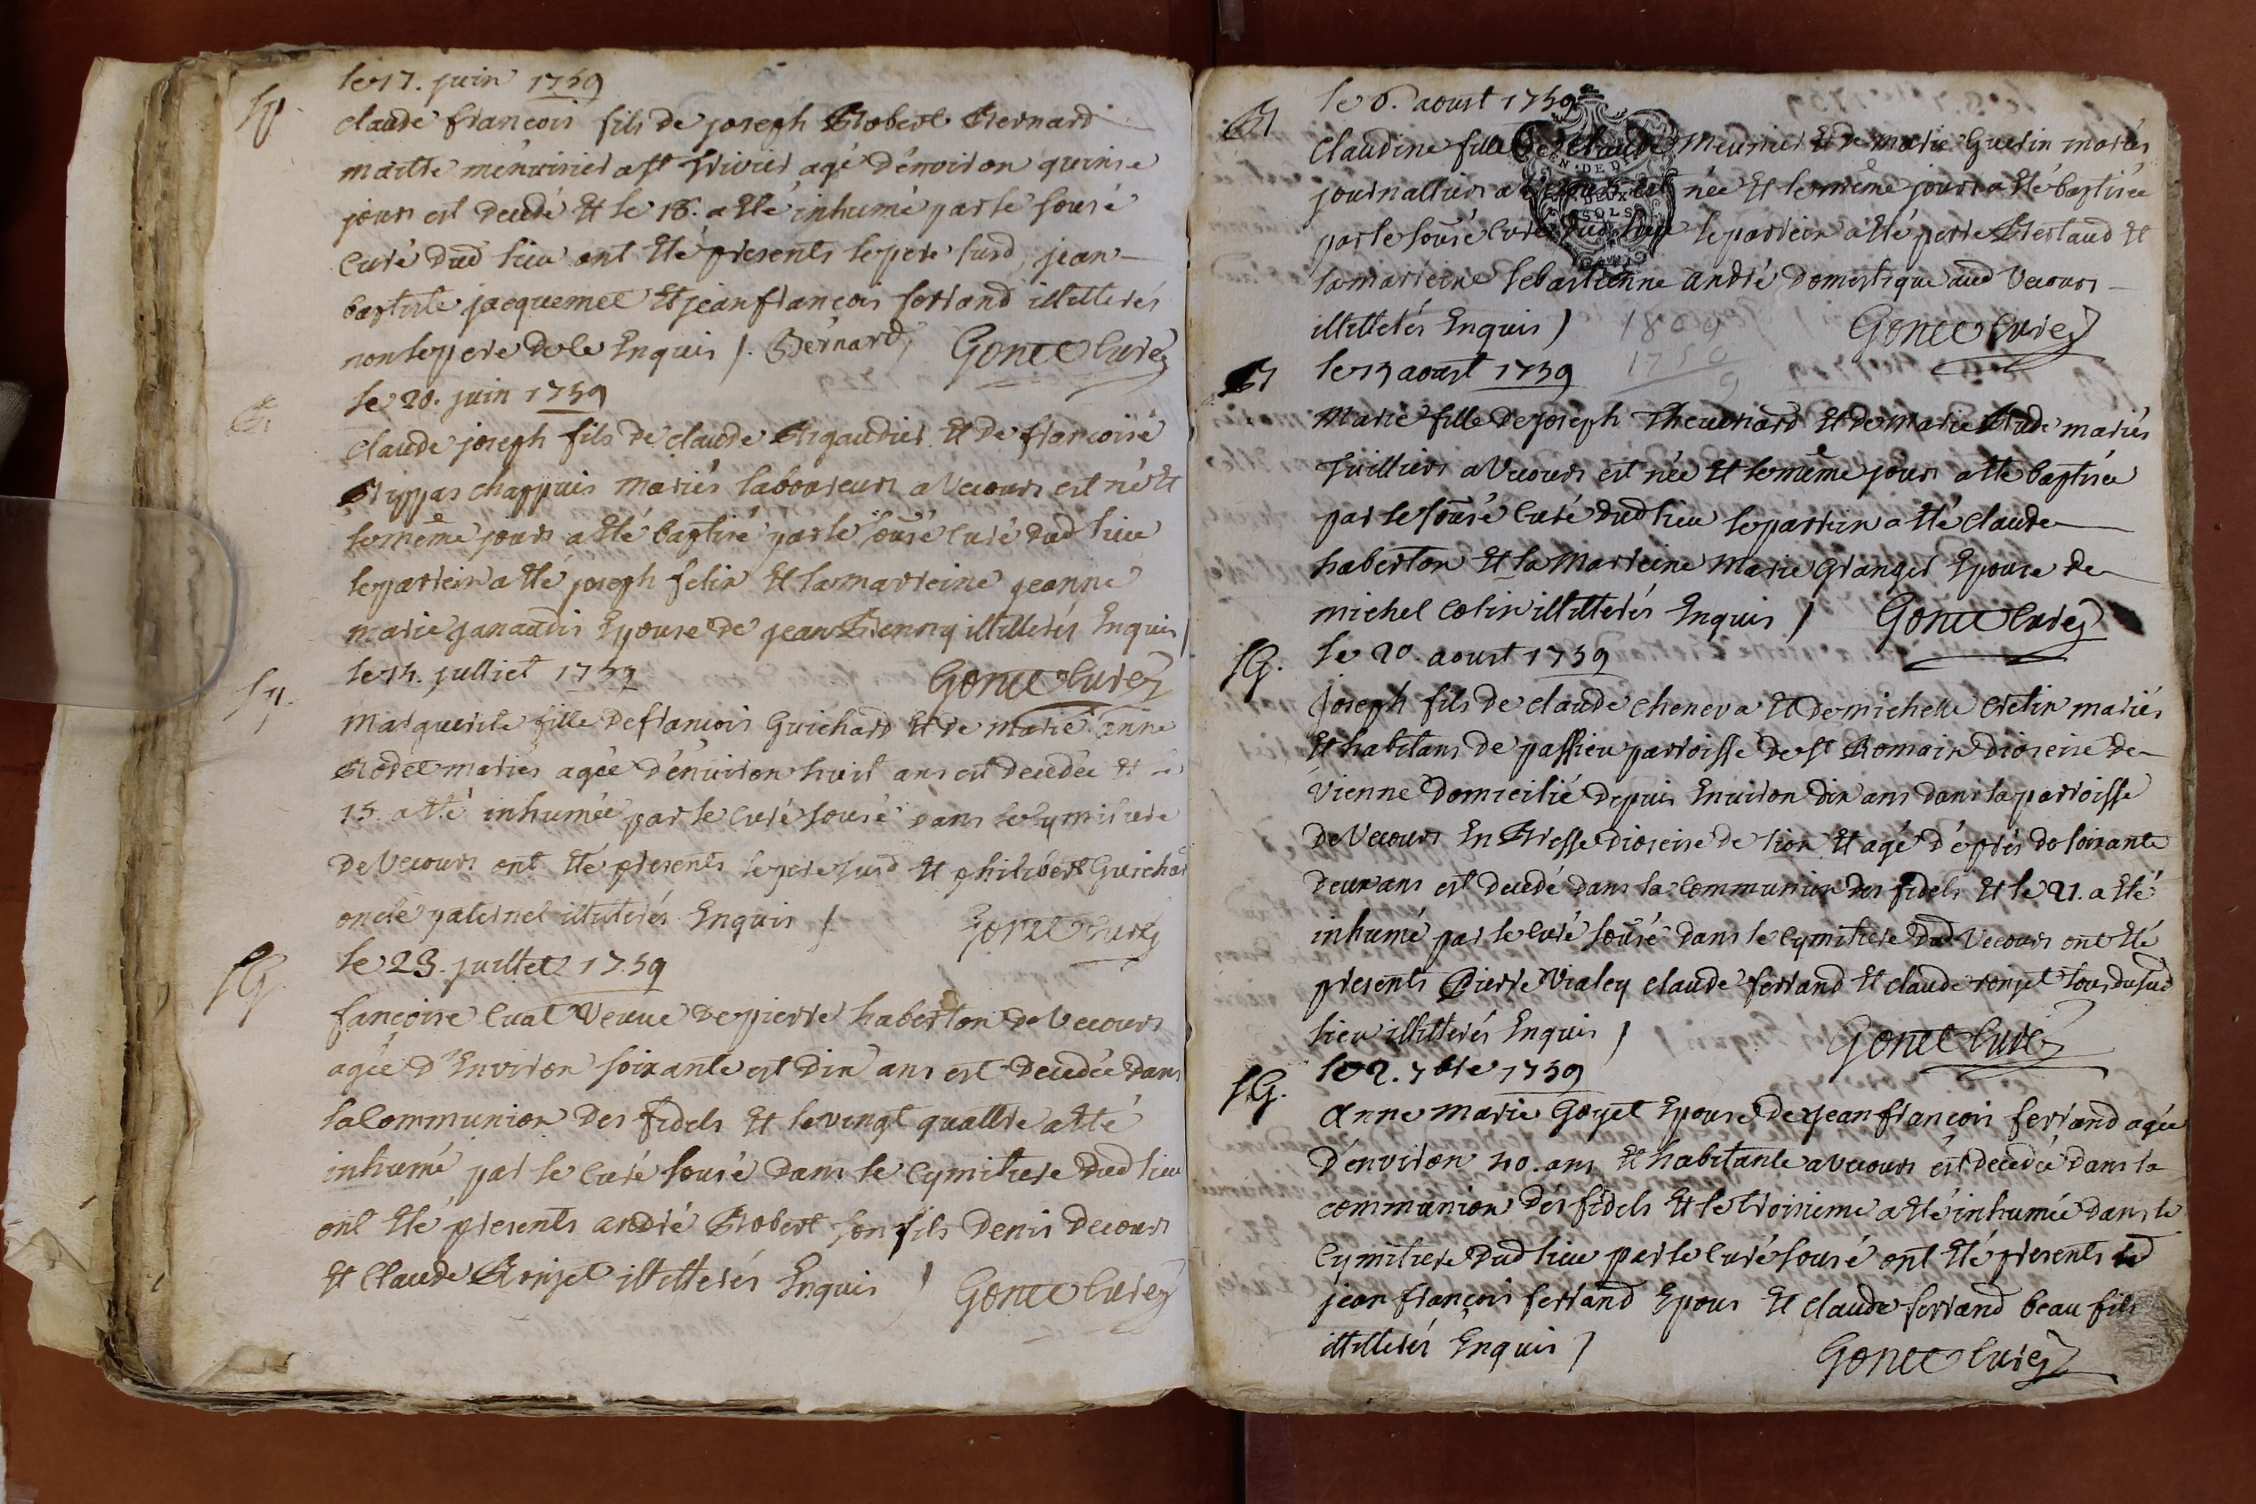 le 17. juin 1759
claude francois fils de joseph Robert Bernard
maitre menuisier a st trivier agé d'environ quinse
jours est decedé et le 18. a été inhumé par le sousé
curé dud lieu ont été presents le pere susd, jean
baptiste jacquemet et jean françois ferrand illitterés
non le pere de le Enquis /. Bernard, Gonet curé
le 20. juin 1759
claude joseph fils de claude Rigaudier et de francoise
chappuis mariés laboureurs a Vecours est né et
le même jours a été baptisé par le sousé curé dud lieu
le parrein a été joseph felix et la marreine jeanne
marie janaudis Epouse de jean illitterés Enquis /
le 14. julliet 1759 Gonet curé
marguerite fille de francois Guichard et de marie anne
Rodet mariés agée d'environ huit ans est decedée et le
15. a été inhumée par le curé sousé dans le cymitiere
de Vecours ont été presents le pere susd et philibert Guichar
oncle paternel illiterés Enquis / Gonet curé
le 23. juillet 1759
françoise Curt Veuve de pierre haberton de Vecours
agée d'Environ soixante est dix ans est decedée dans
la Communion des fidels et le vingt quattre a été
inhumé par le curé sousé dans le cymitiere dud lieu
ont été presents andré Robert son fils denis decours
et Claude Ronjet illitterés Enquis / Gonet curé
le 6. aoust 1759
Claudine fille de Claude Meunier et de marie Guerin mariés
journalliers a Vecours est née et le même jours a été baptisée
par le sousé curé dud lieu le parrein a été pierre Bertaud et
la marreine sebastienne andré domestique aud Vecours
illitterés Enquis / Gonet curé
1809
1750
9
le 13 aoust 1759
Marie fille de joseph Theuenard et de marie Bude mariés
tuilliers a Vecours est née et le même jours a été baptisée
par le sousé curé dud lieu le parrein a été claude
haberton et la Marreine Marie Granger Epouse de
michel colin illitterés Enquis / Gonet curé
le 20. aoust 1759
joseph fils de claude cheneva et de michelle cretin mariés
et habitans de passieu parroisse de st Romain dioseise de
Vienne domicilié depuis Environ dix ans dans la parroisse
de Vecours En Bresse dioseise de lion et agé d'éprés de soixante
deux ans est decedé dans la communion des fidels et le 21. a été
inhumé par le curé sousé dans le cymitiere dud Vecours ont été
presents Pierre Vialey claude ferrand et claude ronjet tous du sud
lieu illitterés Enquis / Gonet curé
le 2. 7bre 1759
Anne marie Goyet Epouse de jean françois ferrand agée
d'environ 40. ans et habitante a Vecours est decedée dans la
communion des fidels et le troisieme a été inhumée dans le
cymitiere dud lieu par le curé sousé ont été presents led
jean françois ferrand Epoux et claude ferrand beau fils
illitterés Enquis / Gonet curé